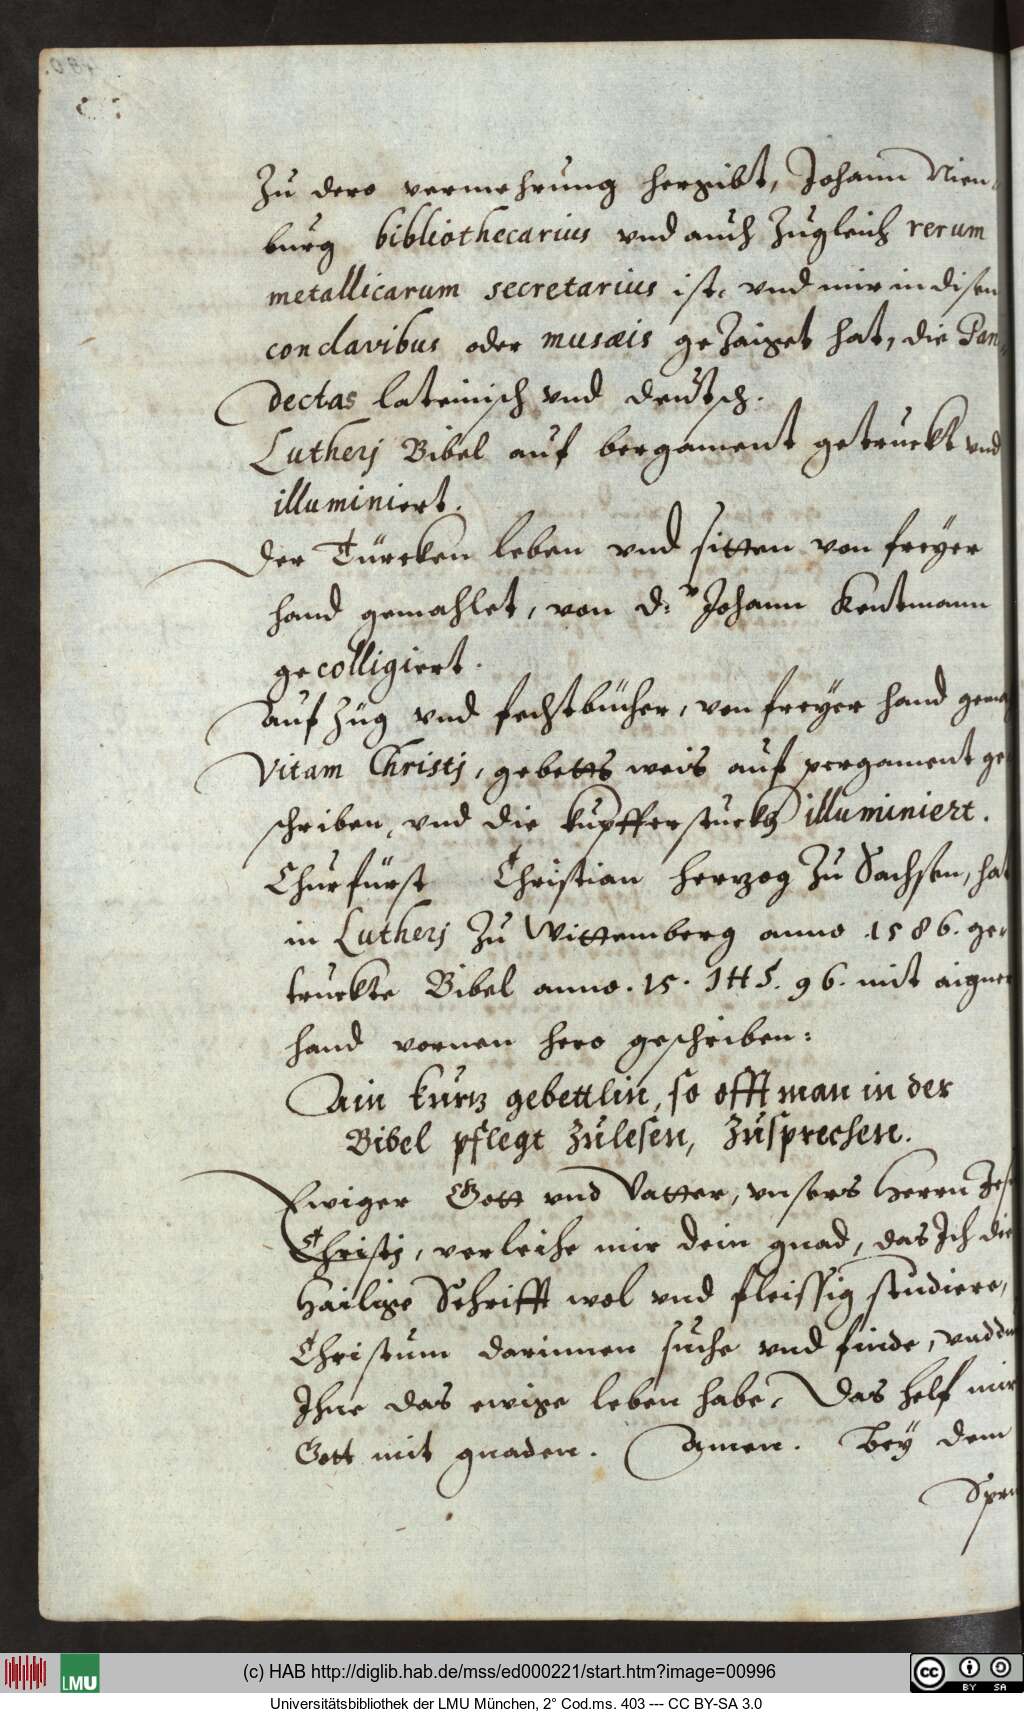 Zu dero vermehrung hergibt, Johann Nien-
burg bibliothecarius vnd auch Zugleich rerum
metallicarum secretarius ist, vnd mir in disen
conclavibus oder musæis geZaiget hat, die Pan
dectas lateinisch vnd deutsch.
Lutherj Bibel auf bergament getruckt vnd
illuminiert.
Der Türcken leben vnd sitten von freÿer
hand gemahlet, von D: Johann Kentmann
gecolligiert.
Aufzüg vnd fechtbücher, von freÿer hand gema
Vitam Christj, gebetts weis auf pergament ge
schriben, vnd die kupfferstuckh illuminiert.
Churfürst Christian herzog Zu Sachsen, hat
in Lutherj Zu Wittemberg anno 1586. ge
truckte Bibel anno. 15. IHS. 96. mit aigner
hand vornen hero geschriben:
Ain kurtz gebettlin, so offt man in der
Bibel pflegt Zulesen, Zusprechen.
Ewiger Gott vnd Vatter, vnsers Herrn Jesu
Christj, verleihe mir dein gnad, das Ich die
Hailige Schrifft wol vnd fleissig studiere,
Christum darinnen suche vnd finde, vnd du
Ihne das ewige leben habe, Das helf mir
Gott mit gnaden. Amen. Beÿ dem
Spru
(c) HAB http://diglib.hab.de/mss/ed000221/start.htm?image=00996
LMU
cc BY SA
Universitätsbibliothek der LMU München, 2° Cod.ms. 403 --- CC BY-SA 3.0